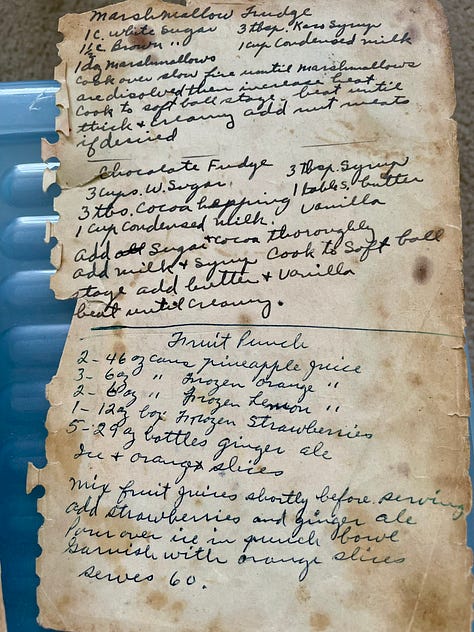 Marshmallow Fudge
1 c. White Sugar 3 tbsp. Karo Syrup
1½ c. Brown " 1 cup Condensed milk
1 dz Marshmallows
Cook over slow fire until Marshmallows
are disolved then increase heat
Cook to soft ball stage, beat until
thick & creamy add nut meats
if desired
Chocolate Fudge
3 cups. W. Sugar. 3 Tbsp. Syrup
3 tbs. Cocoa heapping 1 tabls. butter
1 cup condensed milk. Vanilla
add Sugar & cocoa thoroughly
add milk & syrup Cook to Soft ball
stage add butter & Vanilla
beat until creamy.
Fruit Punch
2 - 46 oz cans pineapple juice
3 - 6 oz " Frozen orange "
2 - 6 oz " Frozen Lemon "
1 - 12 oz box Frozen Strawberries
5 - 29 oz bottles ginger ale
Ice & orange slices
Mix fruit juices shortly before serving
add strawberries and ginger ale
Pour over ice in punch bowl
Garnish with orange slices
serves 60.